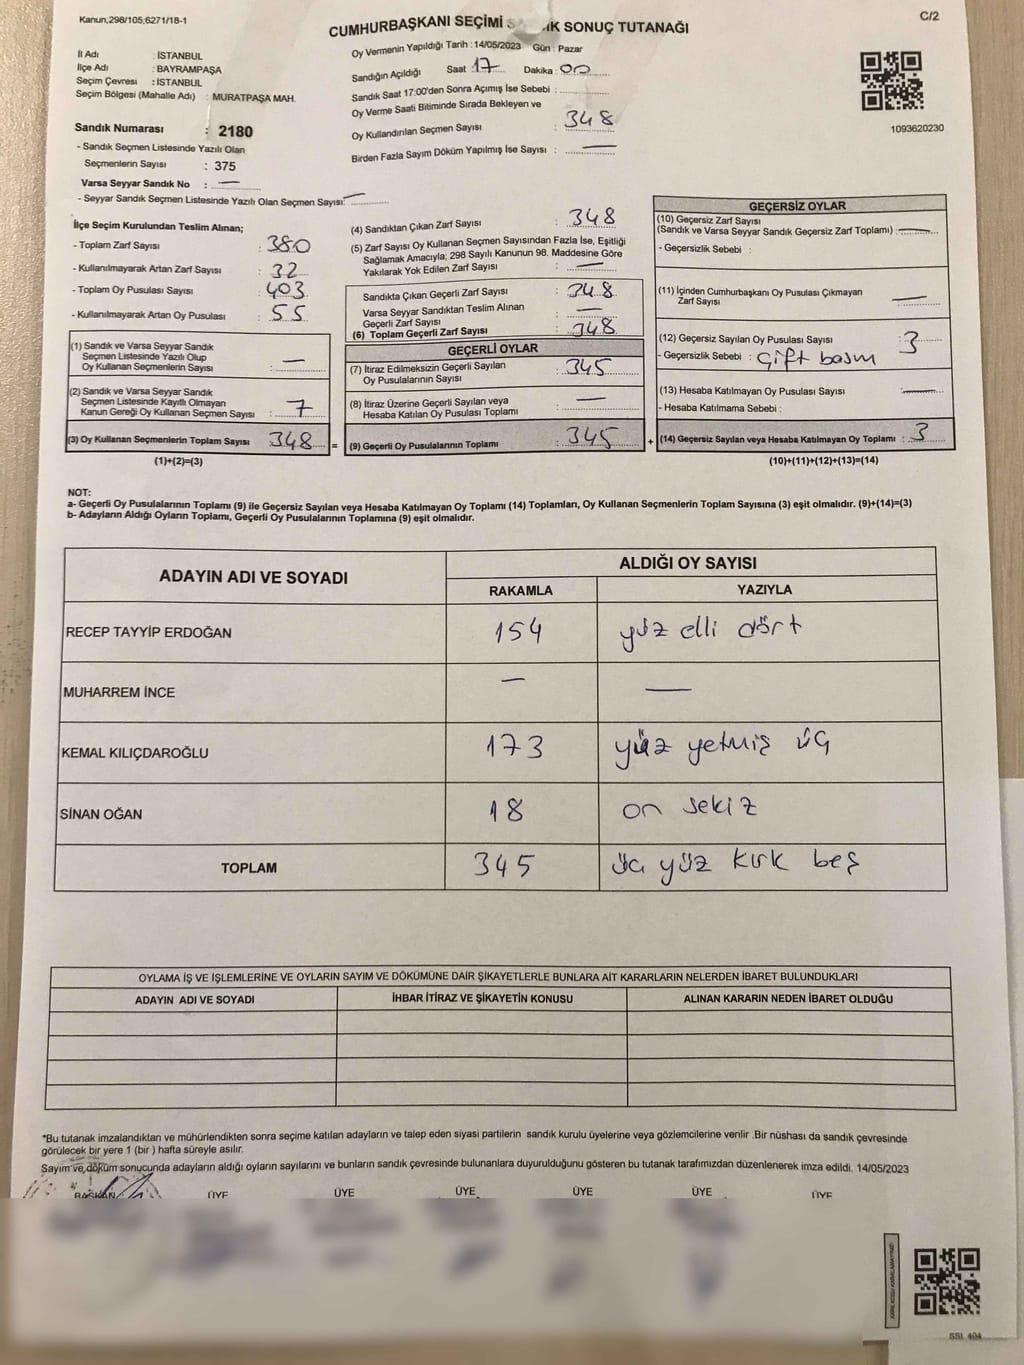 Kanun,298/105;6271/18-1
C/2
CUMHURBAŞKANI SEÇİMİ SONUÇ TUTANAĞI
Oy Vermenin Yapıldığı Tarih : 14/05/2023 Gün : Pazar
İl Adı : İSTANBUL
İlçe Adı : BAYRAMPAŞA
Seçim Çevresi : İSTANBUL
Seçim Bölgesi (Mahalle Adı) : MURATPAŞA MAH.
Sandık Numarası : 2180
- Sandık Seçmen Listesinde Yazılı Olan
Seçmenlerin Sayısı : 375
Varsa Seyyar Sandık No : —
- Seyyar Sandık Seçmen Listesinde Yazılı Olan Seçmen Sayısı: —
Sandığın Açıldığı Saat 17 Dakika : 00
Sandık Saat 17:00'den Sonra Açımış İse Sebebi :
Oy Verme Saati Bitiminde Sırada Bekleyen ve
Oy Kullandırılan Seçmen Sayısı : 348
Birden Fazla Sayım Döküm Yapılmış İse Sayısı : —
1093620230
İlçe Seçim Kurulundan Teslim Alınan;
- Toplam Zarf Sayısı : 380
- Kullanılmayarak Artan Zarf Sayısı : 32
- Toplam Oy Pusulası Sayısı : 403
- Kullanılmayarak Artan Oy Pusulası : 55
(1) Sandık ve Varsa Seyyar Sandık
Seçmen Listesinde Yazılı Olup
Oy Kullanan Seçmenlerin Sayısı : —
(2) Sandık ve Varsa Seyyar Sandık
Seçmen Listesinde Kayıtlı Olmayan
Kanun Gereği Oy Kullanan Seçmen Sayısı : 7
(3) Oy Kullanan Seçmenlerin Toplam Sayısı 348 =
(1)+(2)=(3)
(4) Sandıktan Çıkan Zarf Sayısı : 348
(5) Zarf Sayısı Oy Kullanan Seçmen Sayısından Fazla İse, Eşitliği
Sağlamak Amacıyla; 298 Sayılı Kanunun 98. Maddesine Göre
Yakılarak Yok Edilen Zarf Sayısı : —
Sandıkta Çıkan Geçerli Zarf Sayısı : 348
Varsa Seyyar Sandıktan Teslim Alınan
Geçerli Zarf Sayısı : —
(6) Toplam Geçerli Zarf Sayısı : 348
GEÇERLİ OYLAR
(7) İtiraz Edilmeksizin Geçerli Sayılan
Oy Pusulalarının Sayısı : 345
(8) İtiraz Üzerine Geçerli Sayılan veya
Hesaba Katılan Oy Pusulası Toplamı : —
(9) Geçerli Oy Pusulalarının Toplamı : 345 +
GEÇERSİZ OYLAR
(10) Geçersiz Zarf Sayısı
(Sandık ve Varsa Seyyar Sandık Geçersiz Zarf Toplamı) : —
- Geçersizlik Sebebi :
(11) İçinden Cumhurbaşkanı Oy Pusulası Çıkmayan
Zarf Sayısı : —
(12) Geçersiz Sayılan Oy Pusulası Sayısı : 3
- Geçersizlik Sebebi : Çift basım
(13) Hesaba Katılmayan Oy Pusulası Sayısı : —
- Hesaba Katılmama Sebebi :
(14) Geçersiz Sayılan veya Hesaba Katılmayan Oy Toplamı : 3
(10)+(11)+(12)+(13)=(14)
NOT:
a- Geçerli Oy Pusulalarının Toplamı (9) ile Geçersiz Sayılan veya Hesaba Katılmayan Oy Toplamı (14) Toplamları, Oy Kullanan Seçmenlerin Toplam Sayısına (3) eşit olmalıdır. (9)+(14)=(3)
b- Adayların Aldığı Oyların Toplamı, Geçerli Oy Pusulalarının Toplamına (9) eşit olmalıdır.
ADAYIN ADI VE SOYADI ALDIĞI OY SAYISI
RAKAMLA YAZIYLA
RECEP TAYYİP ERDOĞAN 154 yüz elli dört
MUHARREM İNCE — —
KEMAL KILIÇDAROĞLU 173 yüz yetmiş üç
SİNAN OĞAN 18 on sekiz
TOPLAM 345 üç yüz kırk beş
OYLAMA İŞ VE İŞLEMLERİNE VE OYLARIN SAYIM VE DÖKÜMÜNE DAİR ŞİKAYETLERLE BUNLARA AİT KARARLARIN NELERDEN İBARET BULUNDUKLARI
ADAYIN ADI VE SOYADI İHBAR İTİRAZ VE ŞİKAYETİN KONUSU ALINAN KARARIN NEDEN İBARET OLDUĞU
*Bu tutanak imzalandıktan ve mühürlendikten sonra seçime katılan adayların ve talep eden siyasi partilerin sandık kurulu üyelerine veya gözlemcilerine verilir .Bir nüshası da sandık çevresinde
görülecek bir yere 1 (bir ) hafta süreyle asılır.
Sayım ve döküm sonucunda adayların aldığı oyların sayılarını ve bunların sandık çevresinde bulunanlara duyurulduğunu gösteren bu tutanak tarafımızdan düzenlenerek imza edildi. 14/05/2023
BAŞKAN ÜYE ÜYE ÜYE ÜYE ÜYE ÜYE
SSI_404